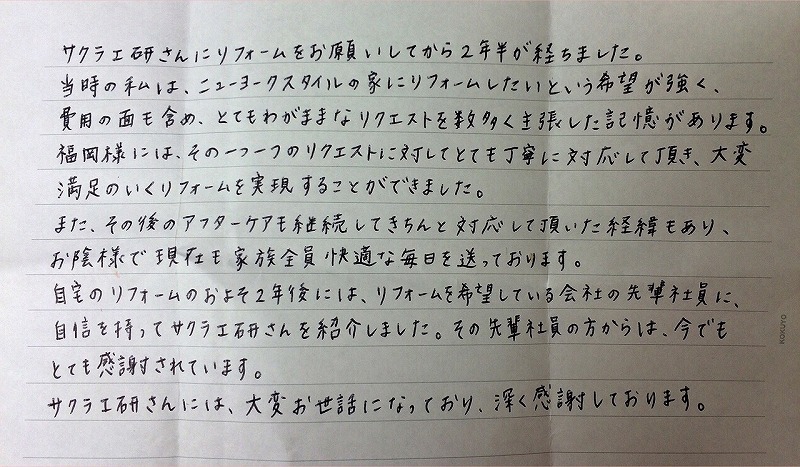 サクラ工研さんにリフォームをお願いしてから2年半が経ちました。
当時の私は、ニューヨークスタイルの家にリフォームしたいという希望が強く、
費用の面も含め、とてもわがままなリクエストを数多く主張した記憶があります。
福岡様には、その一つ一つのリクエストに対してとても丁寧に対応して頂き、大変
満足のいくリフォームを実現することができました。
また、その後のアフターケアも継続してきちんと対応して頂いた経緯もあり、
お陰様で現在も家族全員快適な毎日を送っております。
自宅のリフォームのおよそ2年後には、リフォームを希望している会社の先輩社員に、
自信を持ってサクラ工研さんを紹介しました。その先輩社員の方からは、今でも
とても感謝されています。
サクラ工研さんには、大変お世話になっており、深く感謝しております。
KOKUYO